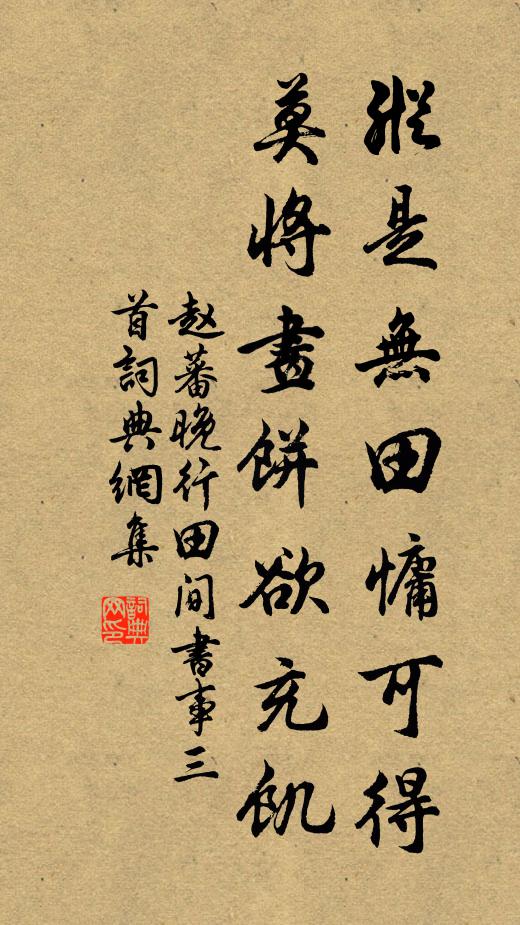 縱是無田慵可得
莫將畫餅欲充飢
赵蕃晚行田间書事三
首詞典網集
詞典
网印